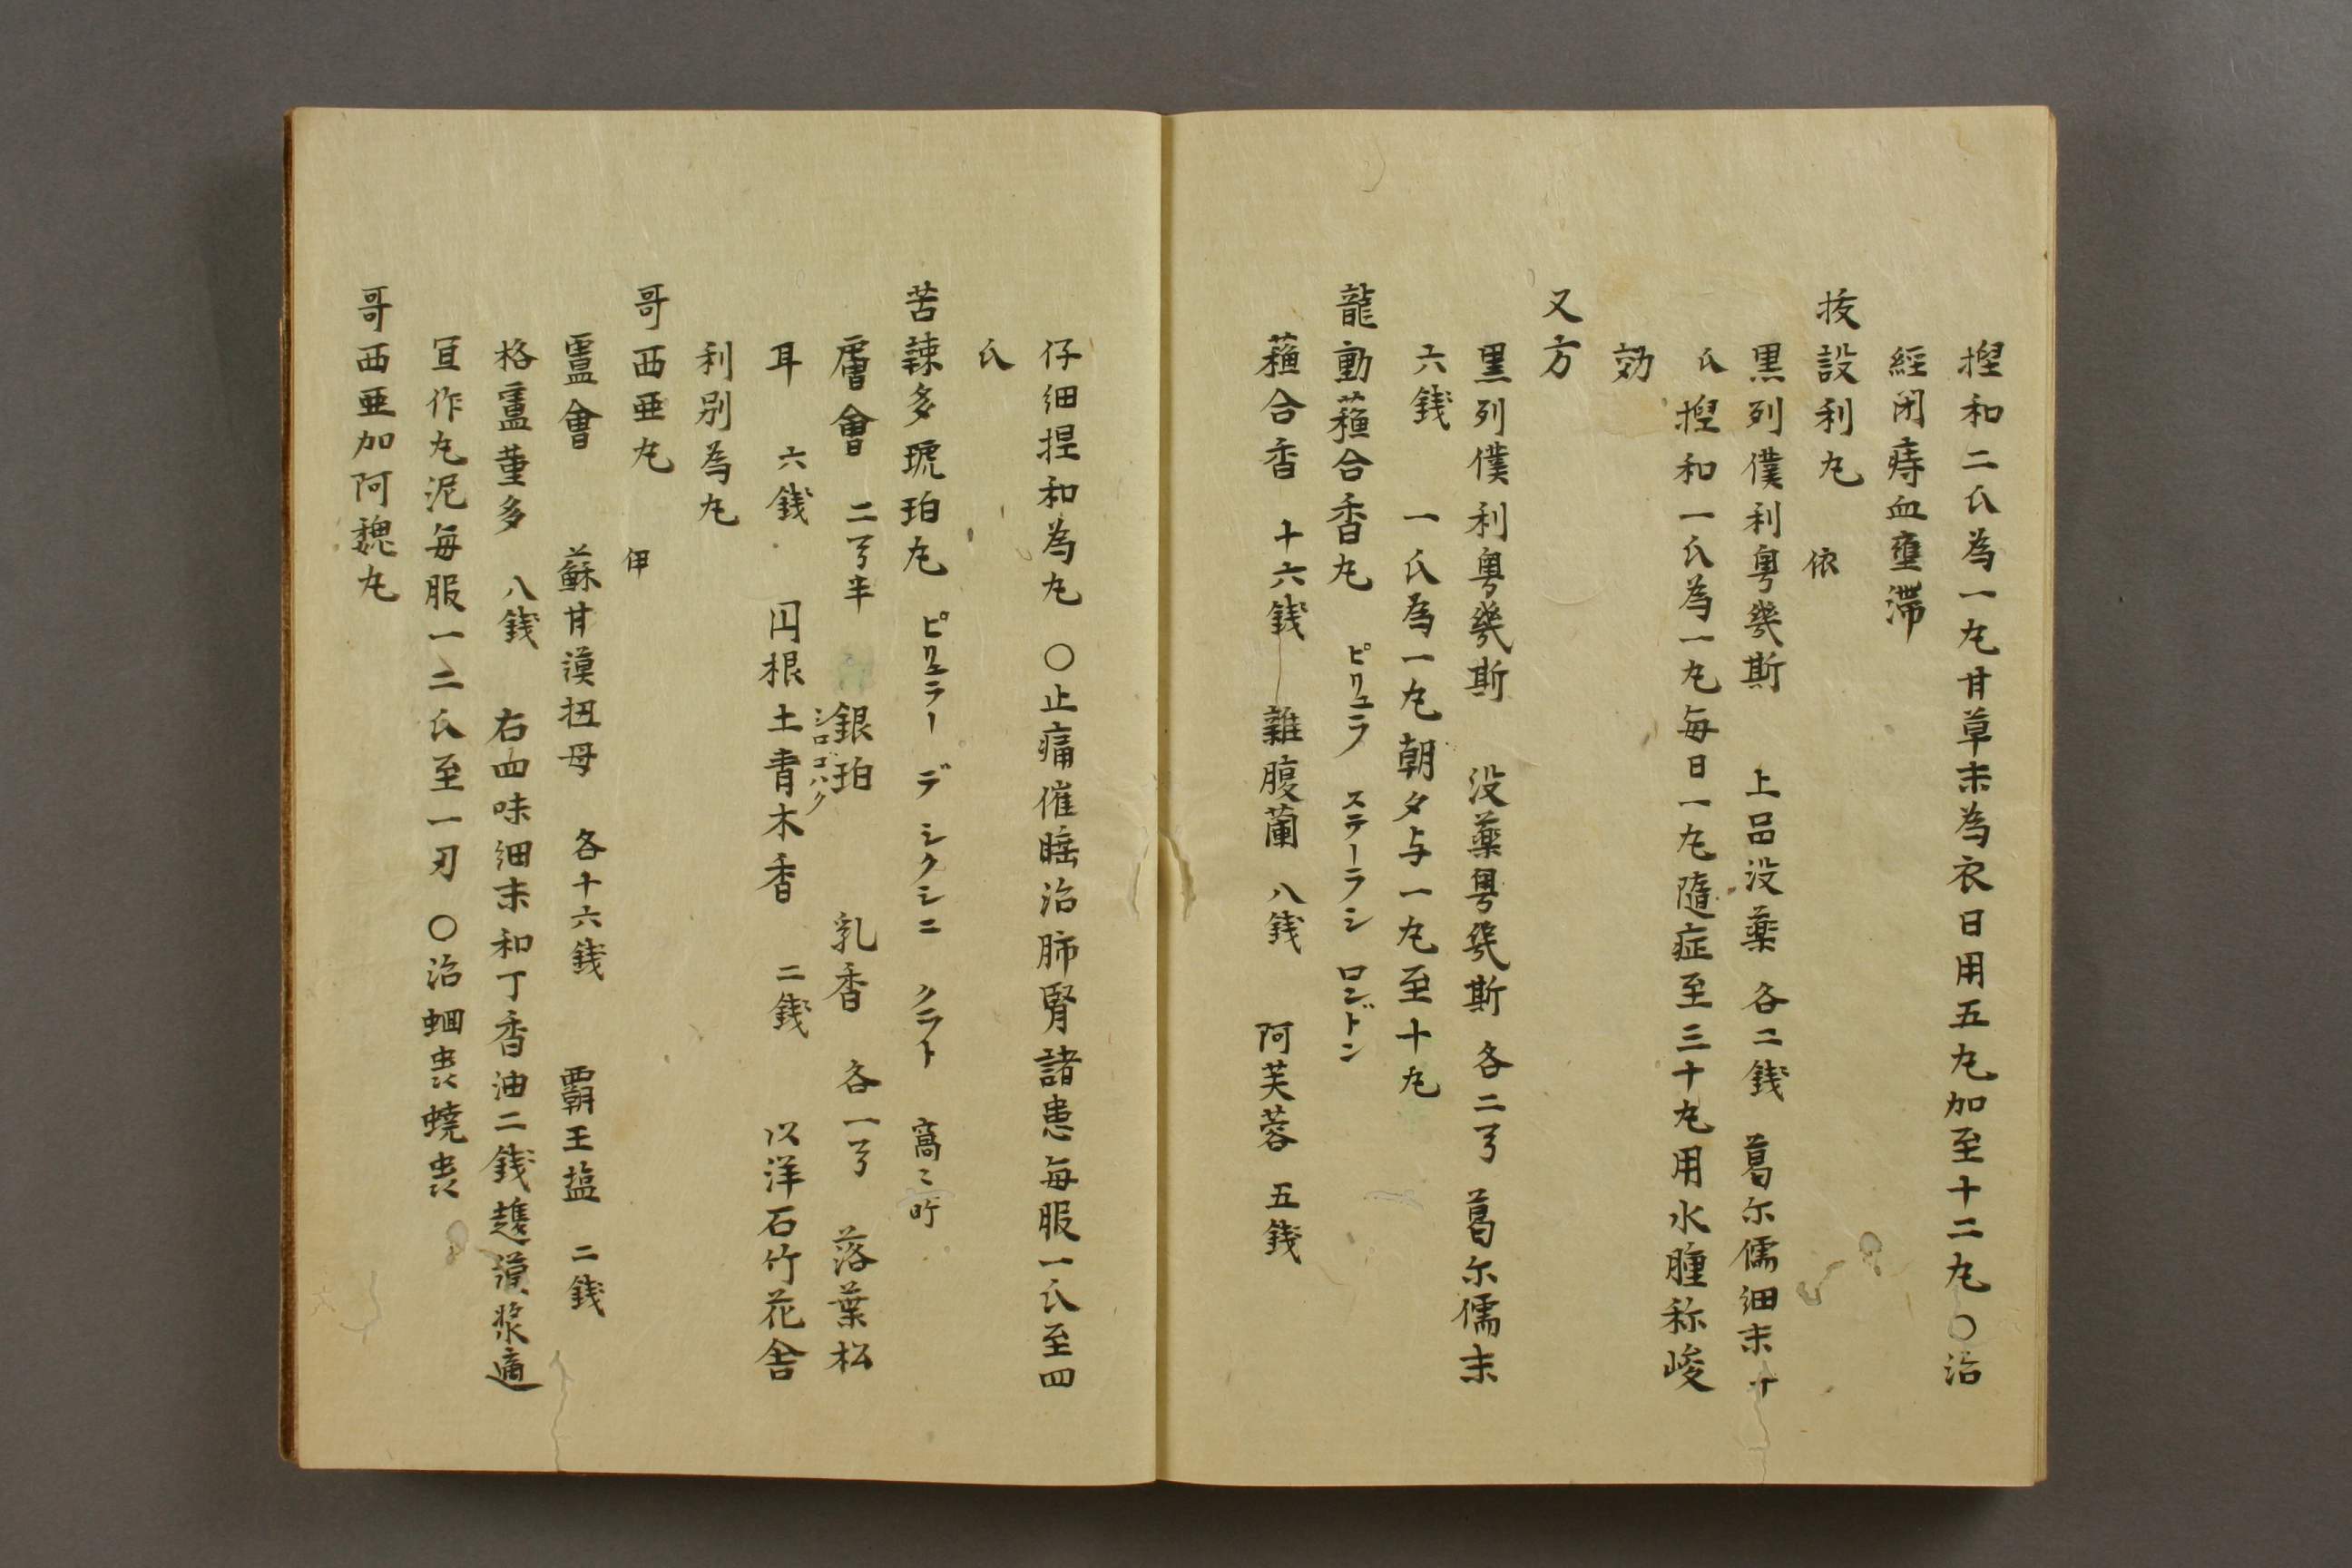 揑和二氏為一丸甘草末為衣日用五丸加至十二丸〇治
經闭痔血壅滞
抜設利丸 侬
黒列僕利粤幾斯 上品没薬 各二銭 葛尓儒細末十
氏揑和一氏為一丸毎日一丸隨症至三十丸用水腫称峻
効
又方
黒列僕利粤幾斯 没薬粤幾斯 各二丂 葛尓儒末
六銭 一氏為一丸朝夕与一丸至十丸
龍動蘓合香丸 ピリュラ ステーラシ ロンドン
蘓合香 十六銭 雜腹蘭 八銭 阿芙蓉 五銭
仔細捏和為丸 〇止痛催睡治肺腎諸患毎服一氏至四
氏
苦辣多琥珀丸 ピリュラー デ シクシニ クラト 窩々所
膚會 二丂半 銀珀 シロコハク 乳香 各一丂 落葉松
耳 六銭 円根土青木香 二銭 以洋石竹花舎
利別為丸
哥西亜丸 伊
盧會 蘇甘漠扭母 各十六銭 覇王塩 二銭
格盧菫多 八銭 右四味細末和丁香油二銭 漠漿適
宜作丸泥毎服一二氏至一刃 〇治蛔䖝蟯䖝
哥西亜加阿魏丸